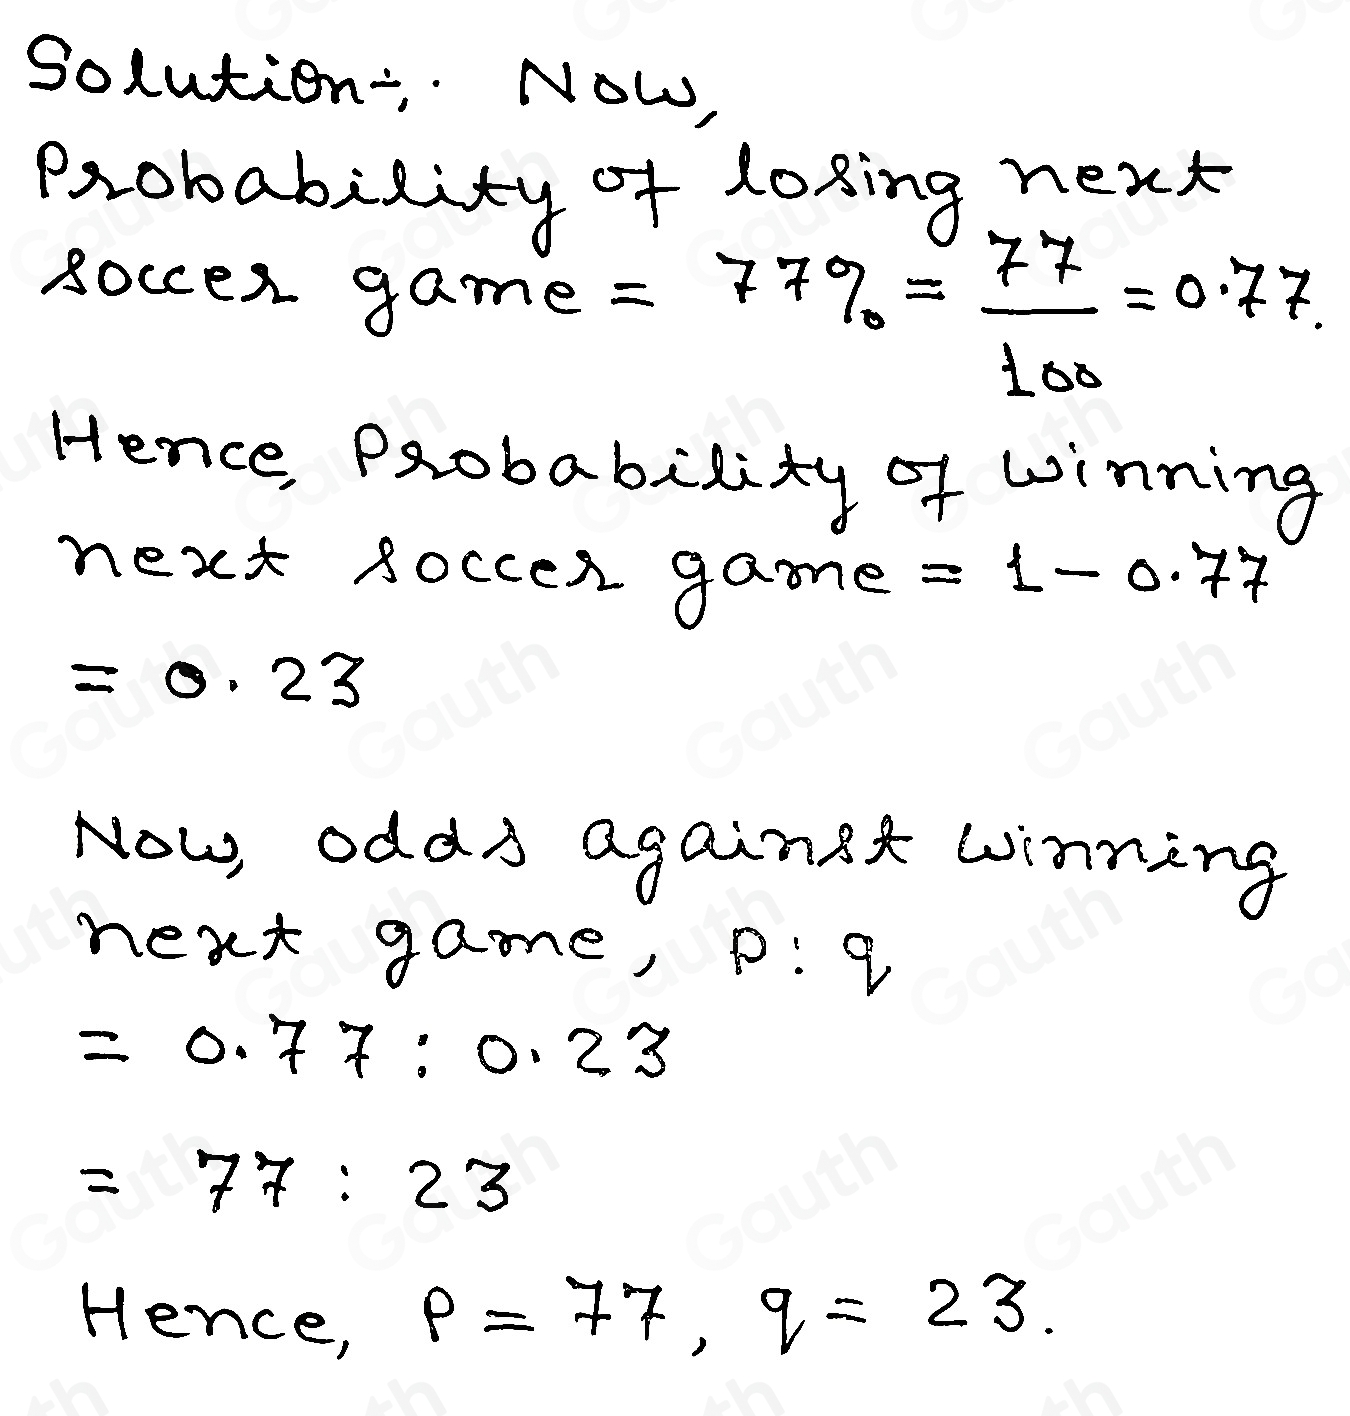 Solution÷, . Now,
Probability of losing next
soccer game = 77% = 77/100 = 0.77.
Hence, Probability of winning
next soccer game = 1 - 0.77
= 0.23
Now, odds against winning
next game, p : q
= 0.77 : 0.23
= 77 : 23
Hence, P = 77, q = 23.
Gauth